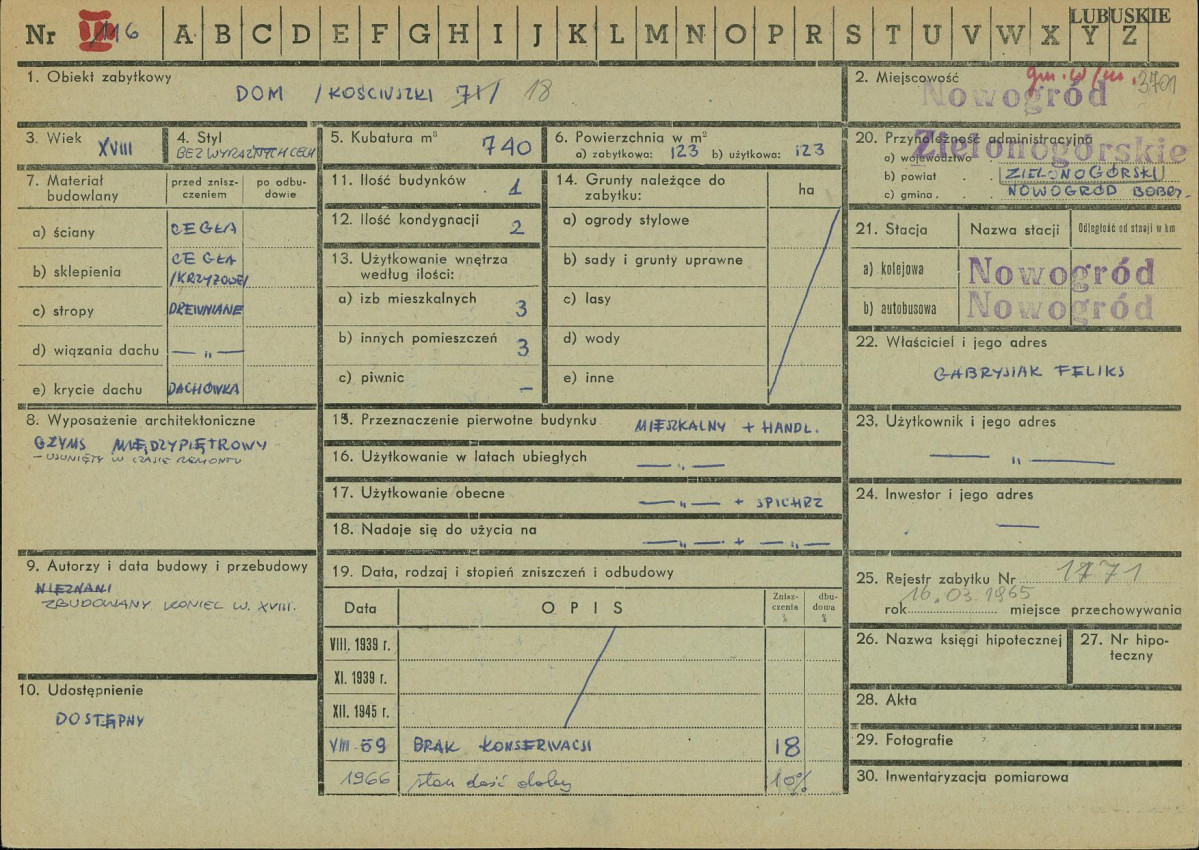 LUBUSKIE
Nr II/116 A B C D E F G H I J K L M N O P R S T U V W X Y Z
1. Obiekt zabytkowy
DOM /KOŚCIUSZKI 71/ 18
2. Miejscowość gm. w/m. 3701
Nowogród
3. Wiek
XVIII
4. Styl
BEZ WYRAŹNYCH CECH
5. Kubatura m³
740
6. Powierzchnia w m²
a) zabytkowa: 123 b) użytkowa: 123
20. Przynależność administracyjna
Zielonogórskie
a) województwo
b) powiat . . ZIELONOGÓRSKI
c) gmina . . . NOWOGRÓD BOBRZ.
7. Materiał budowlany
przed znisz-
czeniem
po odbu-
dowie
a) ściany CEGŁA
b) sklepienia CEGŁA
/KRZYŻOWE/
c) stropy DREWNIANE
d) wiązania dachu — „ —
e) krycie dachu DACHÓWKA
11. Ilość budynków . 1
12. Ilość kondygnacji 2
13. Użytkowanie wnętrza
według ilości:
a) izb mieszkalnych 3
b) innych pomieszczeń 3
c) piwnic —
14. Grunty należące do
zabytku:
ha
a) ogrody stylowe
b) sady i grunty uprawne
c) lasy
d) wody
e) inne
21. Stacja Nazwa stacji Odległość od stacji w km
a) kolejowa Nowogród
b) autobusowa Nowogród
22. Właściciel i jego adres
GABRYSIAK FELIKS
8. Wyposażenie architektoniczne
GZYMS MIĘDZYPIĘTROWY
– USUNIĘTY W CZASIE REMONTU
15. Przeznaczenie pierwotne budynku MIESZKALNY + HANDL.
16. Użytkowanie w latach ubiegłych — „ —
17. Użytkowanie obecne — „ — + SPICHRZ
18. Nadaje się do użycia na — „ — + — „ —
23. Użytkownik i jego adres
— „ —
24. Inwestor i jego adres
—
9. Autorzy i data budowy i przebudowy
NIEZNANI
ZBUDOWANY KONIEC W. XVIII.
19. Data, rodzaj i stopień zniszczeń i odbudowy
Data OPIS Znisz-
czenia
%
dbu-
dowa
%
VIII. 1939 r.
XI. 1939 r.
XII. 1945 r.
VIII 59 BRAK KONSERWACJI 18
1966 stan dość dobry 10%
25. Rejestr zabytku Nr 1771
rok 16.03.1965 miejsce przechowywania
26. Nazwa księgi hipotecznej
27. Nr hipo-
teczny
10. Udostępnienie
DOSTĘPNY
28. Akta
29. Fotografie
30. Inwentaryzacja pomiarowa